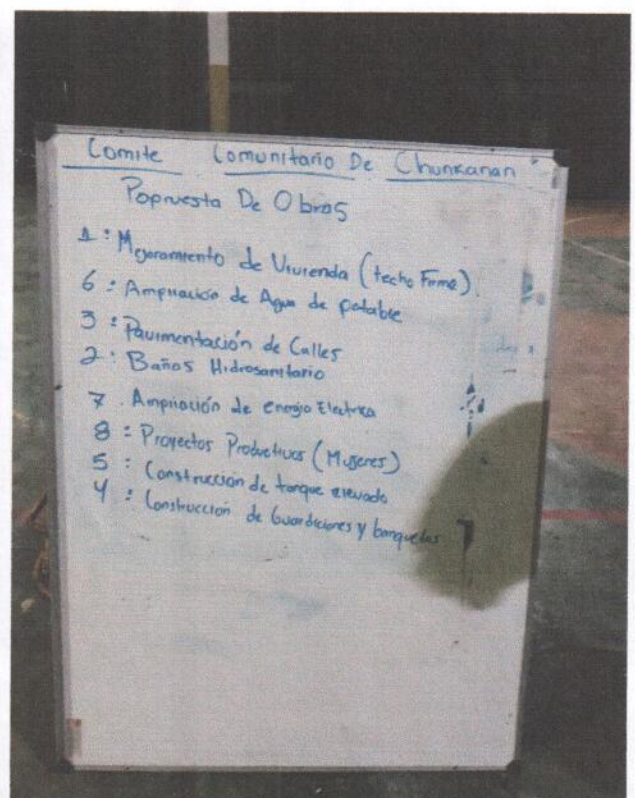 Comite Comunitario De Chunkanan
Popruesta De Obras
1: Mejoramiento de Vivienda (techo Firme)
6: Ampliación de Agua de potable
3: Pavimentación de Calles
2: Baños Hidrosanitario
7. Ampliación de energia Electrica
8: Proyectos Productivos (Mujeres)
5: Construcción de tanque elevado
4: Construcción de Guardiciones y banquetas